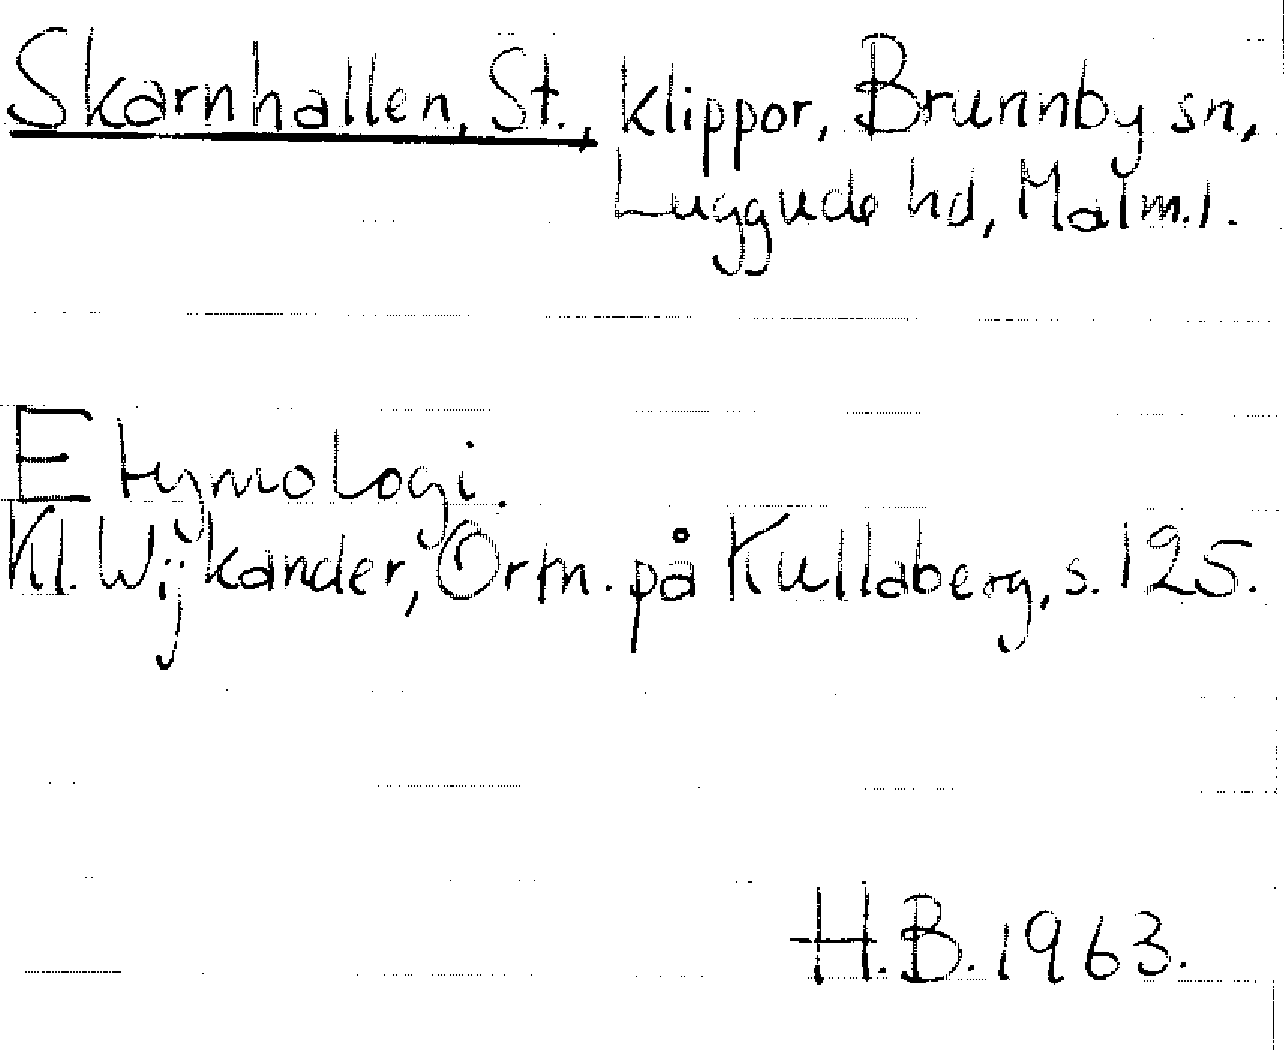 Skarnhallen, St., klippor, Brunnby sn,
Luggude hd, Malm.l.
Etymologi.
Kl. Wijkander, Ortn. på Kullaberg, s. 125.
H.B. 1963.